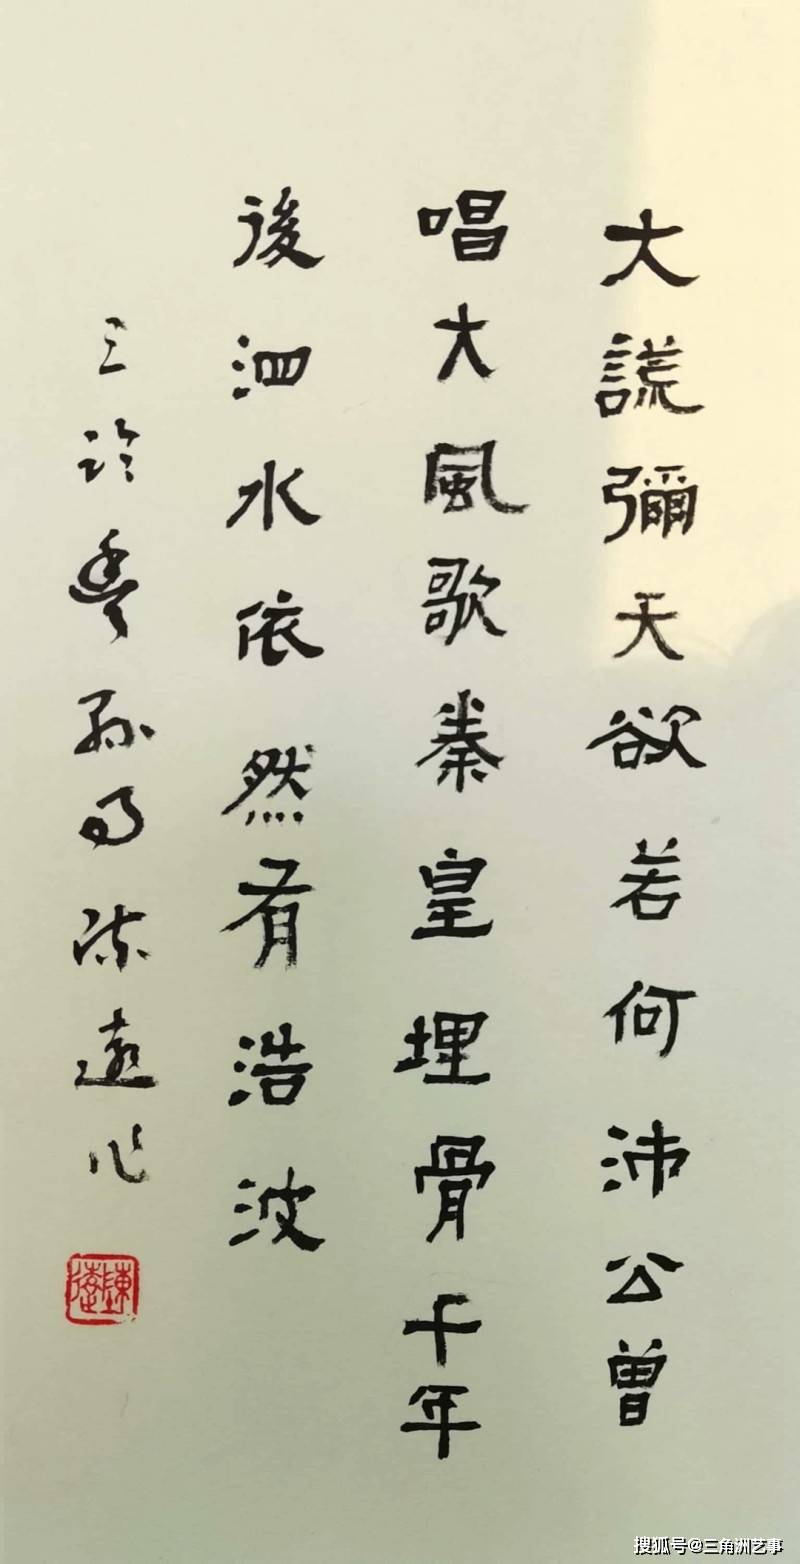 大謊彌天欲若何沛公曾
唱大風歌秦皇埋骨千年
後泗水依然有浩波
三孫陳遠作
陳遠
搜狐号@三角洲艺事